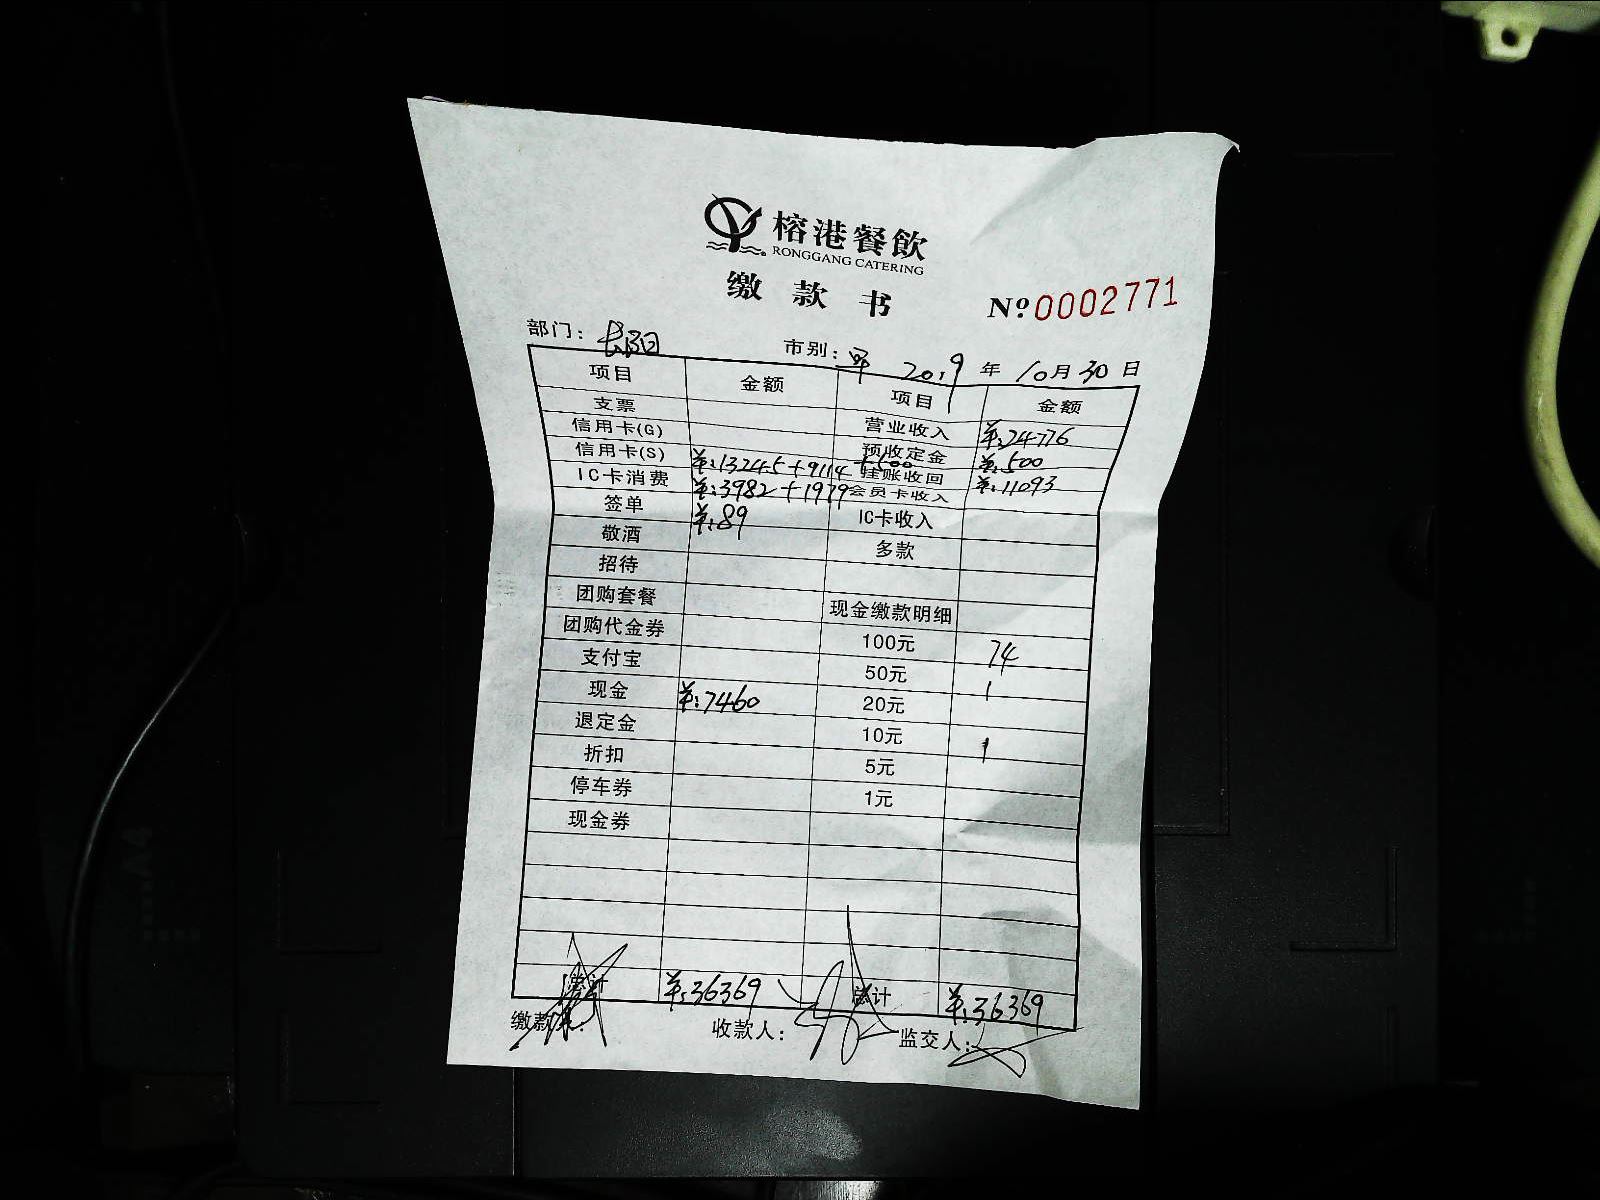 榕港餐飲
RONGGANG CATERING
缴款书
№0002771
部门：长乐 市别：早 2019年10月30日
项目 金额 项目 金额
支票 营业收入 ¥:24776
信用卡(G) 预收定金 ¥:500
信用卡(S) ¥:13245+9114+500 挂账收回 ¥:11093
IC卡消费 ¥:3982+1979 会员卡收入
签单 ¥:89 IC卡收入
敬酒 多款
招待
团购套餐 现金缴款明细
团购代金券 100元 74
支付宝 50元 1
现金 ¥:7460 20元
退定金 10元 1
折扣 5元
停车券 1元
现金券
总计 ¥:36369 总计 ¥:36369
缴款人： 收款人： 监交人：